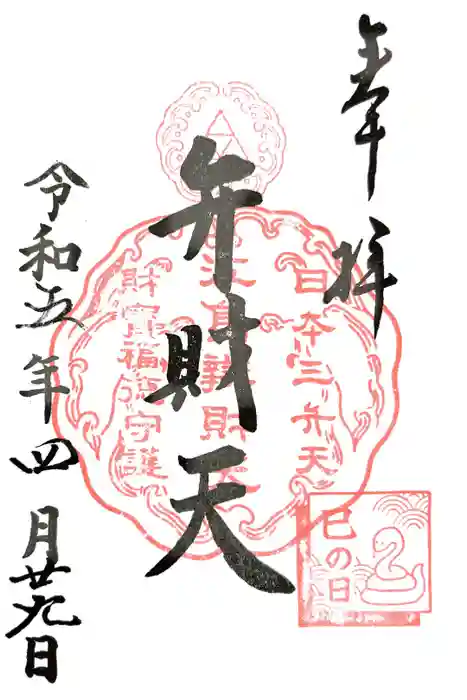 奉拝
日本三弁天
江島辨財天
弁財天
財寶福徳守護
令和五年四月廿九日
巳の日